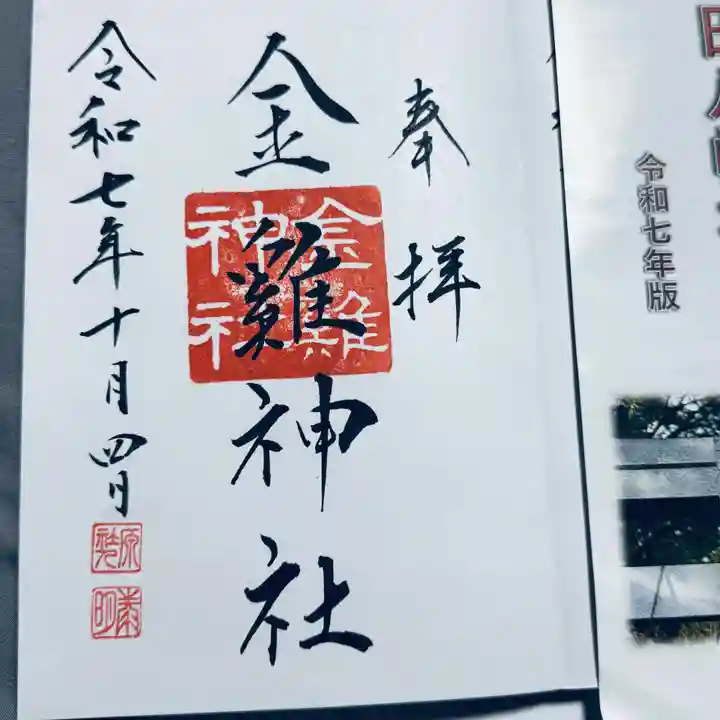 奉拝
金雞神社
金雞
神社
令和七年十月四日
令和七年版